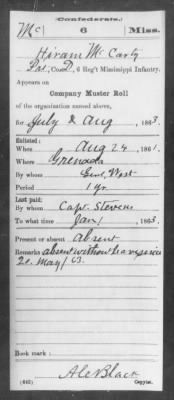 (Confederate.)
Mc 6 Miss.
Hiram McCarty
Pvt, Co. D, 6 Reg't Mississippi Infantry.
Appears on
Company Muster Roll
of the organization named above,
for July & Aug, 1863.
Enlisted:
When Aug 24, 1861.
Where Grenada
By whom Genl West
Period 1 yr.
Last paid:
By whom Capt. Stevens
To what time Jan 1, 1863.
Present or absent Absent
Remarks: absent without leave since
20 May/63.
Book mark:
(642) Copyist.